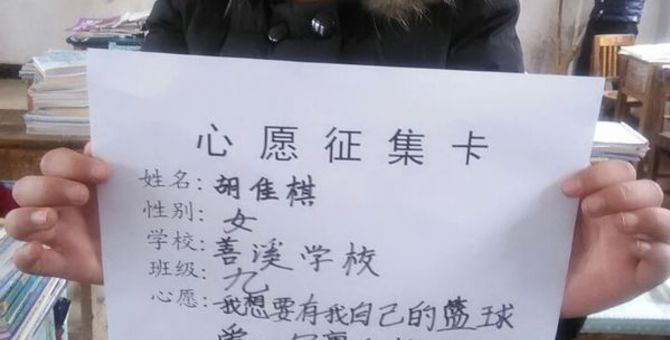 心愿征集卡
姓名：胡佳棋
性别：女
学校：善溪学校
班级：九
心愿：我想要有我自己的篮球